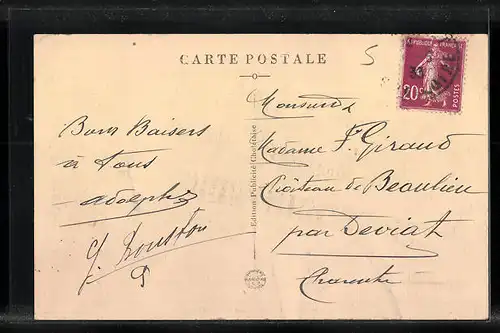 CARTE POSTALE
5
RÉPUBLIQUE FRANÇAISE
20c
POSTES
Bons Baisers
à tous
Adolphe
J. Rousston
Edition Publicité Choletaise
Monsieur &
Madame F. Giraud
Château de Beaulieu
par Deviat
Charente